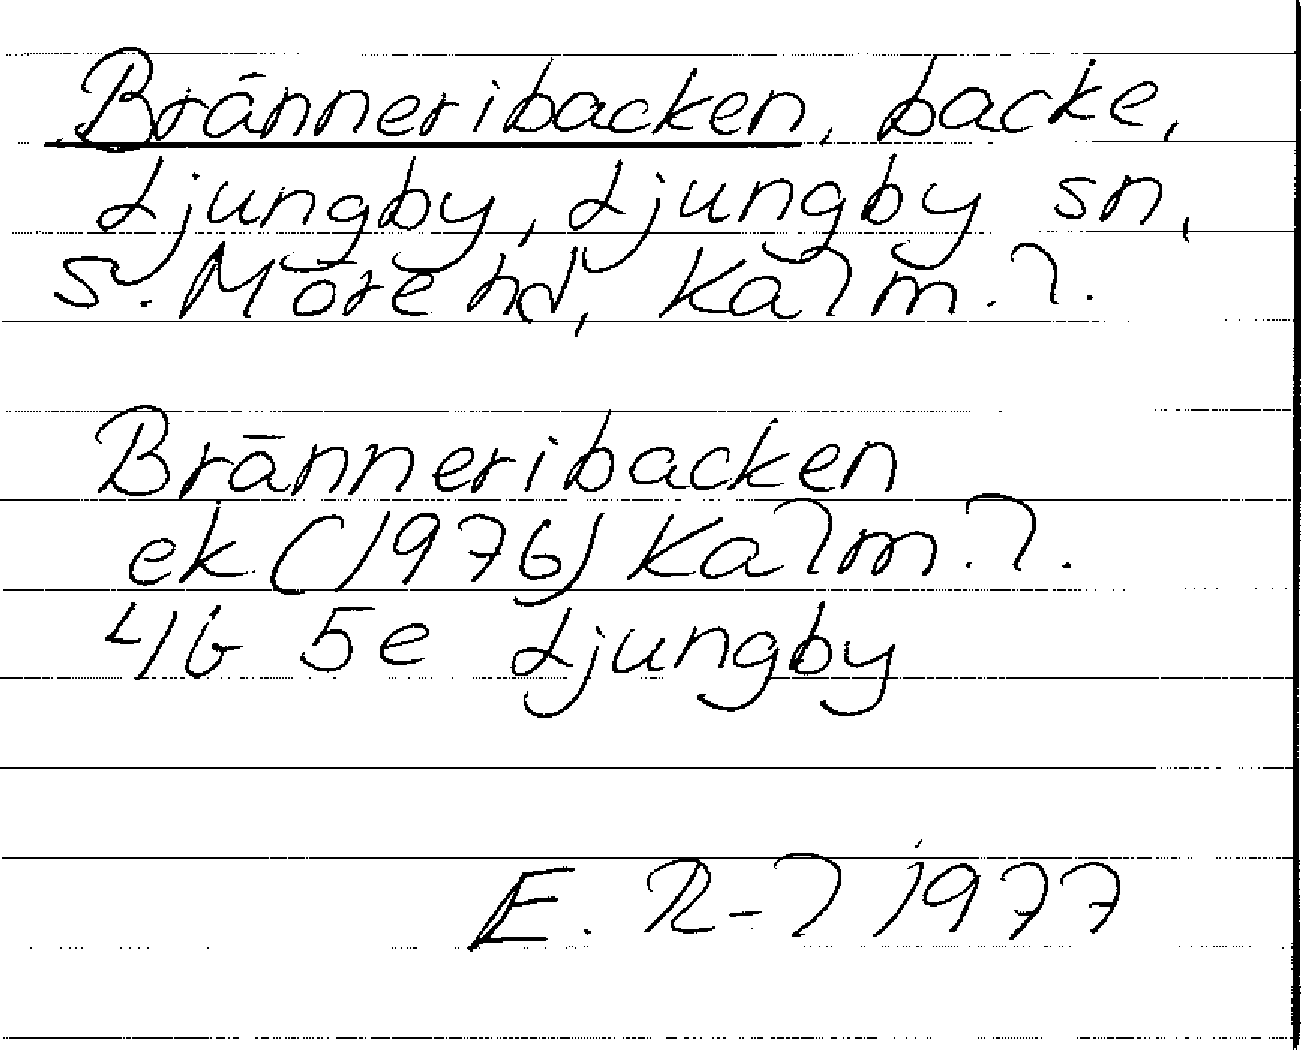 Bränneribacken, backe,
Ljungby, Ljungby sn,
S. Möre hd, Kalm. l.
Bränneribacken
ek (1976) Kalm. l.
4G 5e Ljungby
E. R-l 1977